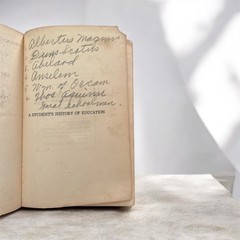 Albertus Magnus
Duns Scotus
Abelard
Anselm
Wm. of Occam
Thos Aquinas
Great Schoolman.
A STUDENT'S HISTORY OF EDUCATION